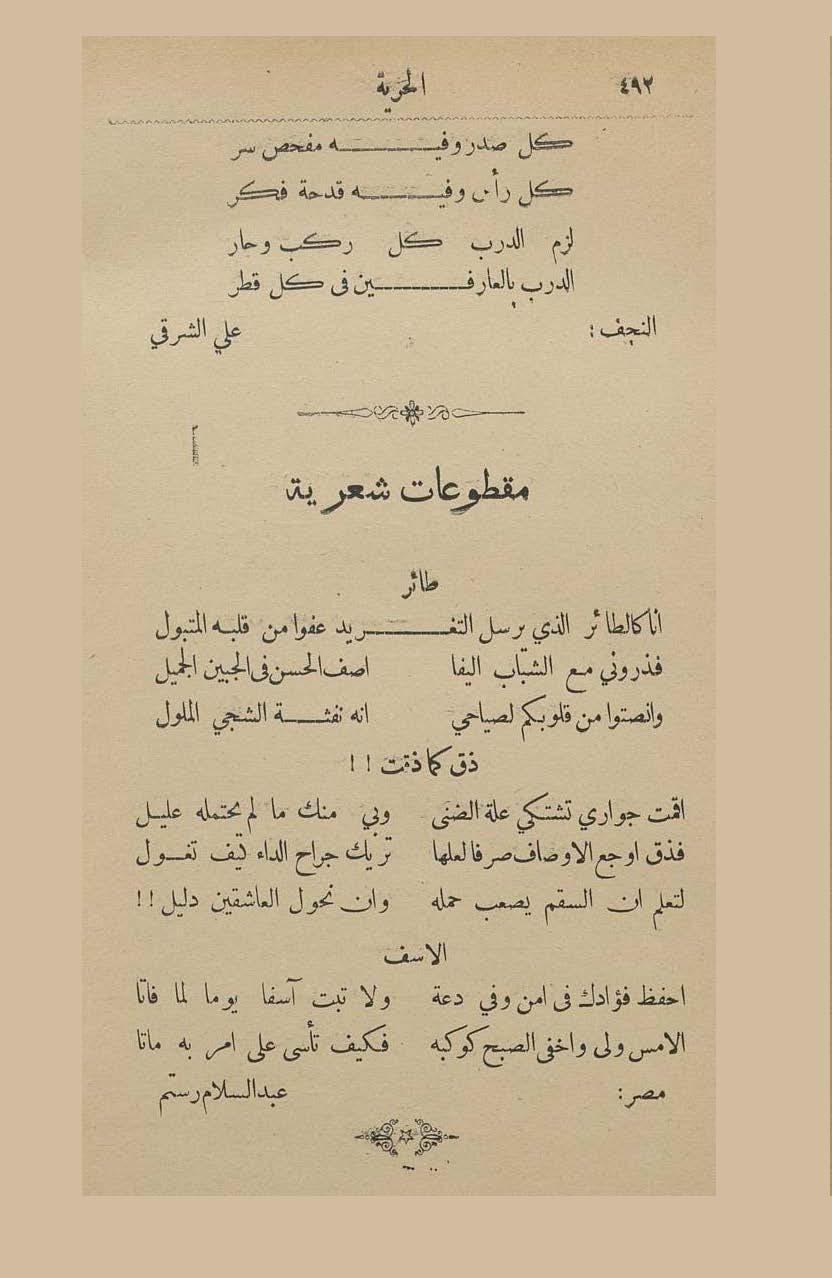 ٤٩٢ الحرية
كل صدر وفيـــه مفحص سر
كل رأس وفيـــه قدحة فكر
لزم الدرب كل ركب وحار
الدرب بالعارفـــين في كل قطر
النجف : علي الشرقي
مقطوعات شعرية
طائر
انا كالطائر الذي يرسل التغـــريد عفوا من قلبه المتبول
فذروني مع الشباب اليفا اصف الحسن في الجبين الجميل
وانصتوا من قلوبكم لصياحي انه نفثـــة الشجي الملول
ذق كما ذقت ! !
اقمت جواري تشتكي علة الضنى وبي منك ما لم يحتمله عليـل
فذق اوجع الاوصاف صرفا لعلها تريك جراح الداء كيف تغـول
لتعلم ان السقم يصعب حمله وان نحول العاشقين دليل ! !
الاسف
احفظ فؤادك في امن وفي دعة ولا تبت آسفا يوما لما فاتا
الامس ولى واخفى الصبح كوكبه فكيف تأسى على امر به ماتا
مصر : عبد السلام رستم